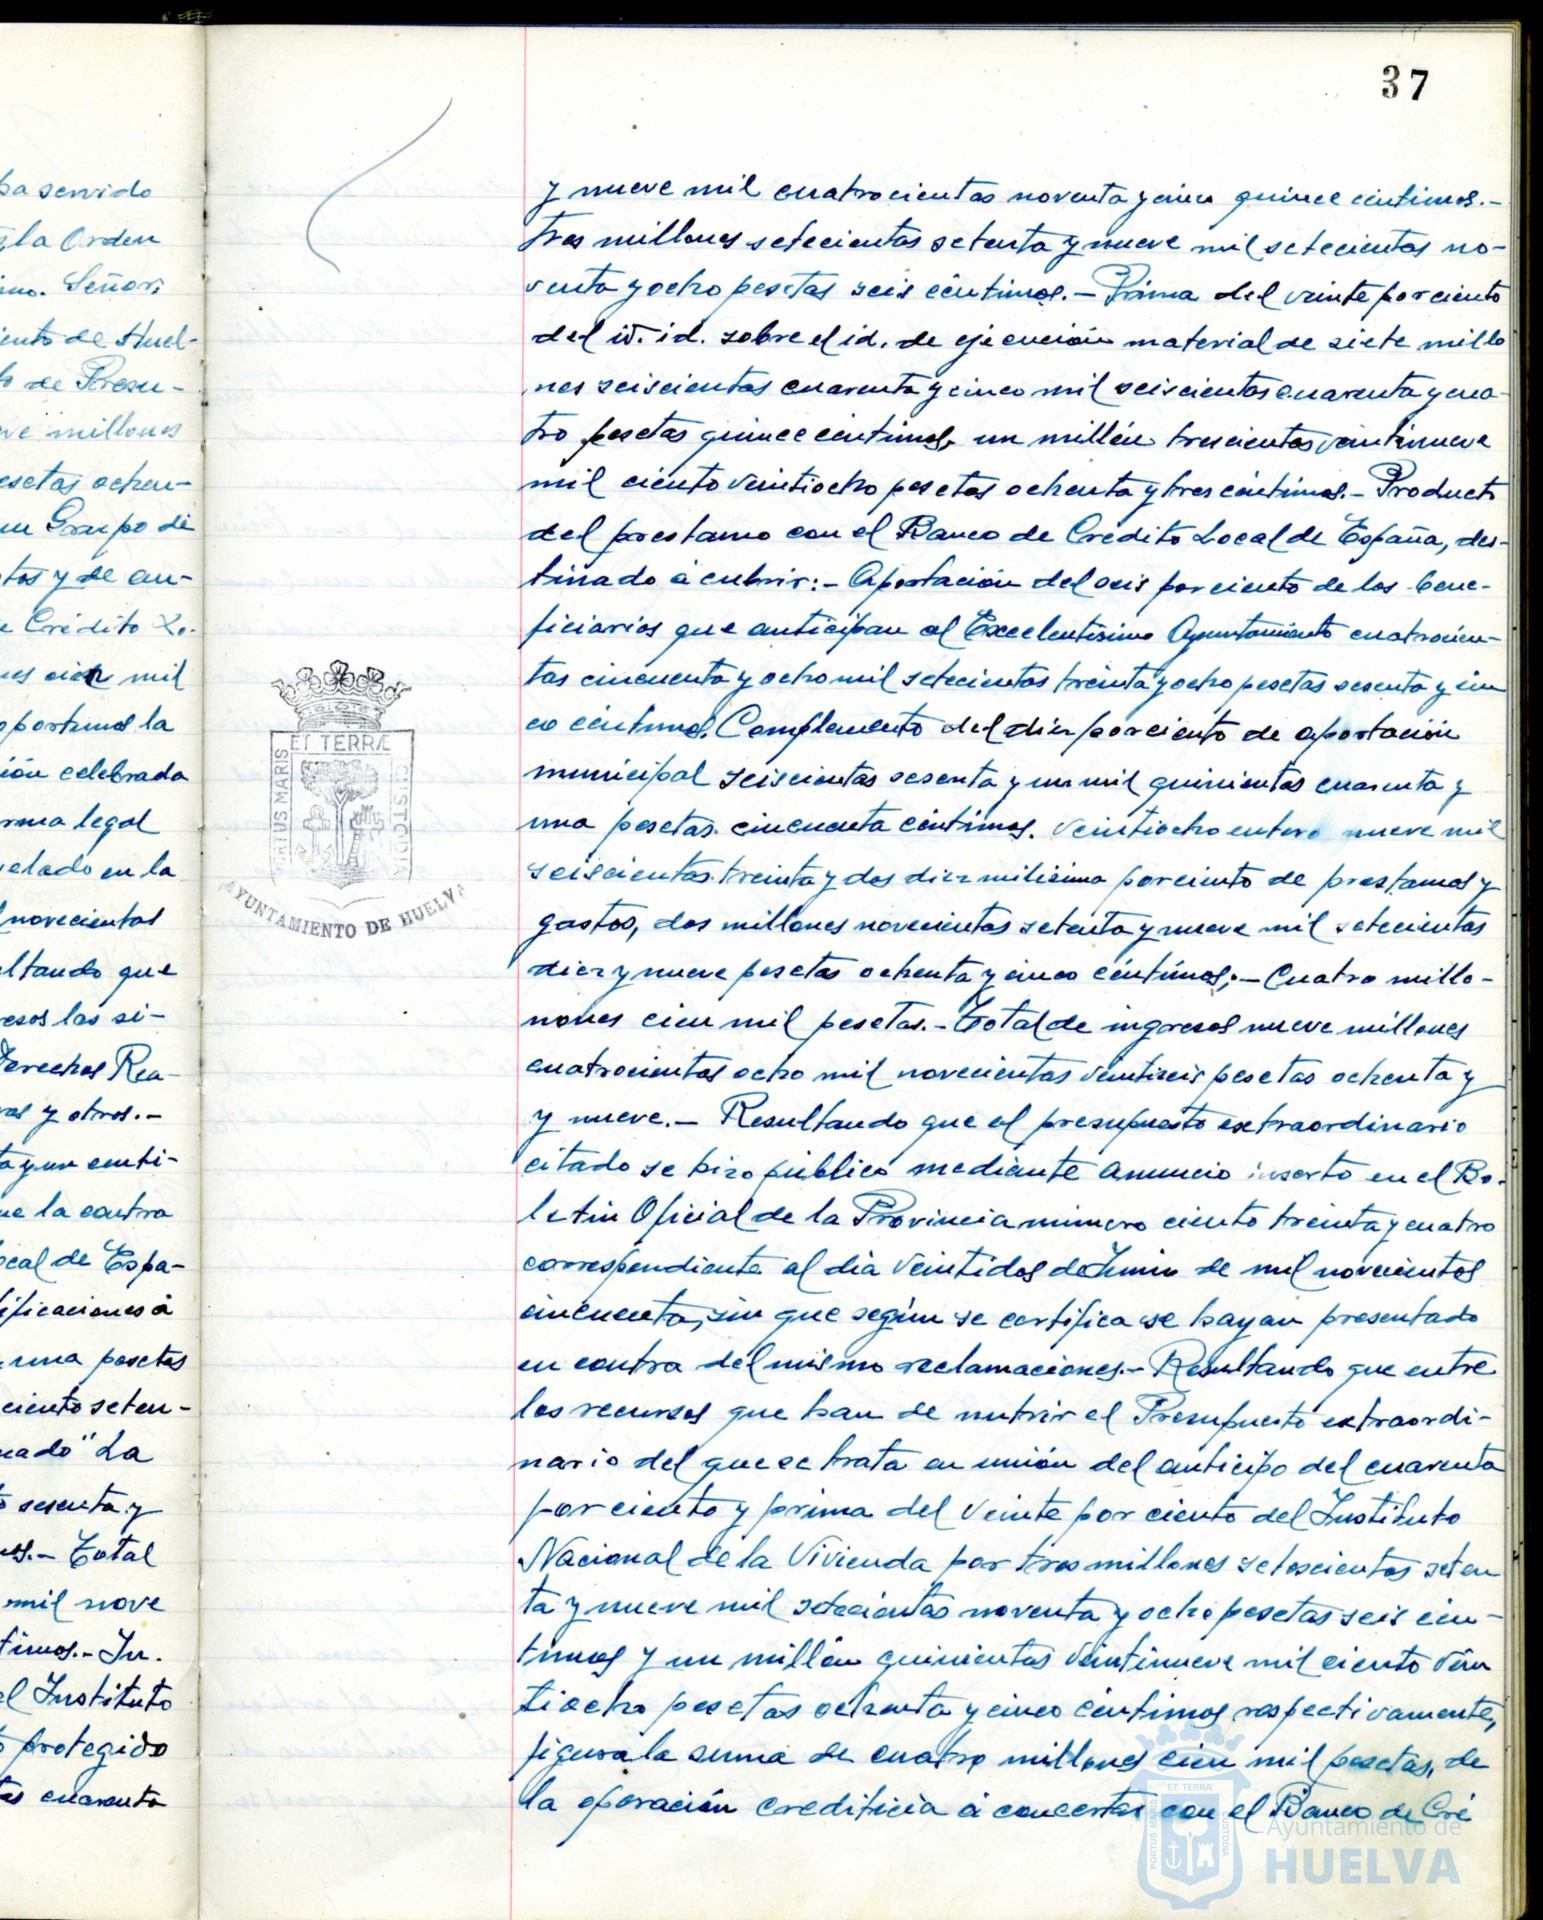 37
ha servido
la Orden
imo. Señor:
iento de Huel-
to de Presu-
ve millones
esetas ochen-
un Grupo de
tos y de an-
e Crédito Lo-
nes cien mil
oportunas la
ión celebrada
rma legal
velado en la
novecientas
ltando que
resos las si-
Derechos Rea-
ras y otros.-
ta y un centi-
ue la contra
ocal de Espa-
ificaciones á
una pesetas
ciento seten-
nado" La
sesenta y
os.- Total
mil nove
timos.- In-
el Instituto
protegido
tas cuarenta
ET TERRÆ
PORTUS MARIS
CUSTODIA
AYUNTAMIENTO DE HUELVA
y nueve mil cuatrocientas noventa y cinco quince céntimos.-
tres millones setecientas setenta y nueve mil setecientas no-
venta y ocho pesetas seis céntimos.- Prima del veinte por ciento
del id. id. sobre el id. de ejecución material de siete millo
nes seiscientas cuarenta y cinco mil seiscientas cuarenta y cua-
tro pesetas quince céntimos, un millón trescientas veintinueve
mil ciento veintiocho pesetas ochenta y tres céntimos.- Producto
del prestamo con el Banco de Credito Local de España, des-
tinado á cubrir:- Aportación del seis por ciento de los bene-
ficiarios que anticipan al Excelentisimo Ayuntamiento cuatrocien-
tas cincuenta y ocho mil setecientas treinta y ocho pesetas sesenta y cin
co céntimos. Complemento del diez por ciento de aportación
municipal seiscientas sesenta y un mil quinientas cuarenta y
una pesetas cincuenta céntimos. Veintiocho entero nueve mil
seiscientas treinta y dos diez milisima por ciento de prestamos y
gastos, dos millones novecientas setenta y nueve mil setecientas
diez y nueve pesetas ochenta y cinco céntimos;- Cuatro millo-
nones cien mil pesetas.- Total de ingresos nueve millones
cuatrocientas ocho mil novecientas veintiseis pesetas ochenta y
y nueve.- Resultando que el presupuesto extraordinario
citado se hizo público mediante anuncio inserto en el Bo-
letin Oficial de la Provincia número ciento treinta y cuatro
correspondiente al día veintidos de Junio de mil novecientos
cincuenta, sin que según se certifica se hayan presentado
en contra del mismo reclamaciones.- Resultando que entre
los recursos que han de nutrir el Presupuesto extraordi-
nario del que se trata en unión del anticipo del cuarenta
por ciento y prima del veinte por ciento del Instituto
Nacional de la Vivienda por tres millones setescientas seten
ta y nueve mil setecientas noventa y ocho pesetas seis cén-
timos y un millón quinientas veintinueve mil ciento vein
tiocho pesetas ochenta y cinco céntimos respectivamente,
figura la suma de cuatro millones cien mil pesetas, de
la operación crediticia á concertar con el Banco de Cré
ET TERRÆ
PORTUS MARIS
CUSTODIA
Ayuntamiento de
HUELVA